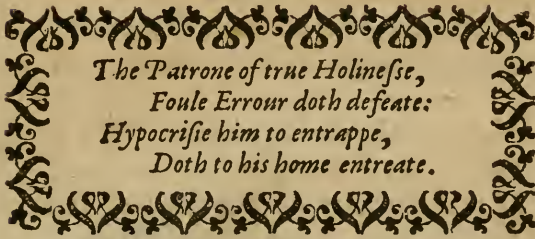 The Patrone of true Holineſſe,
Foule Errour doth defeate:
Hypocriſie him to entrappe,
Doth to his home entreate.